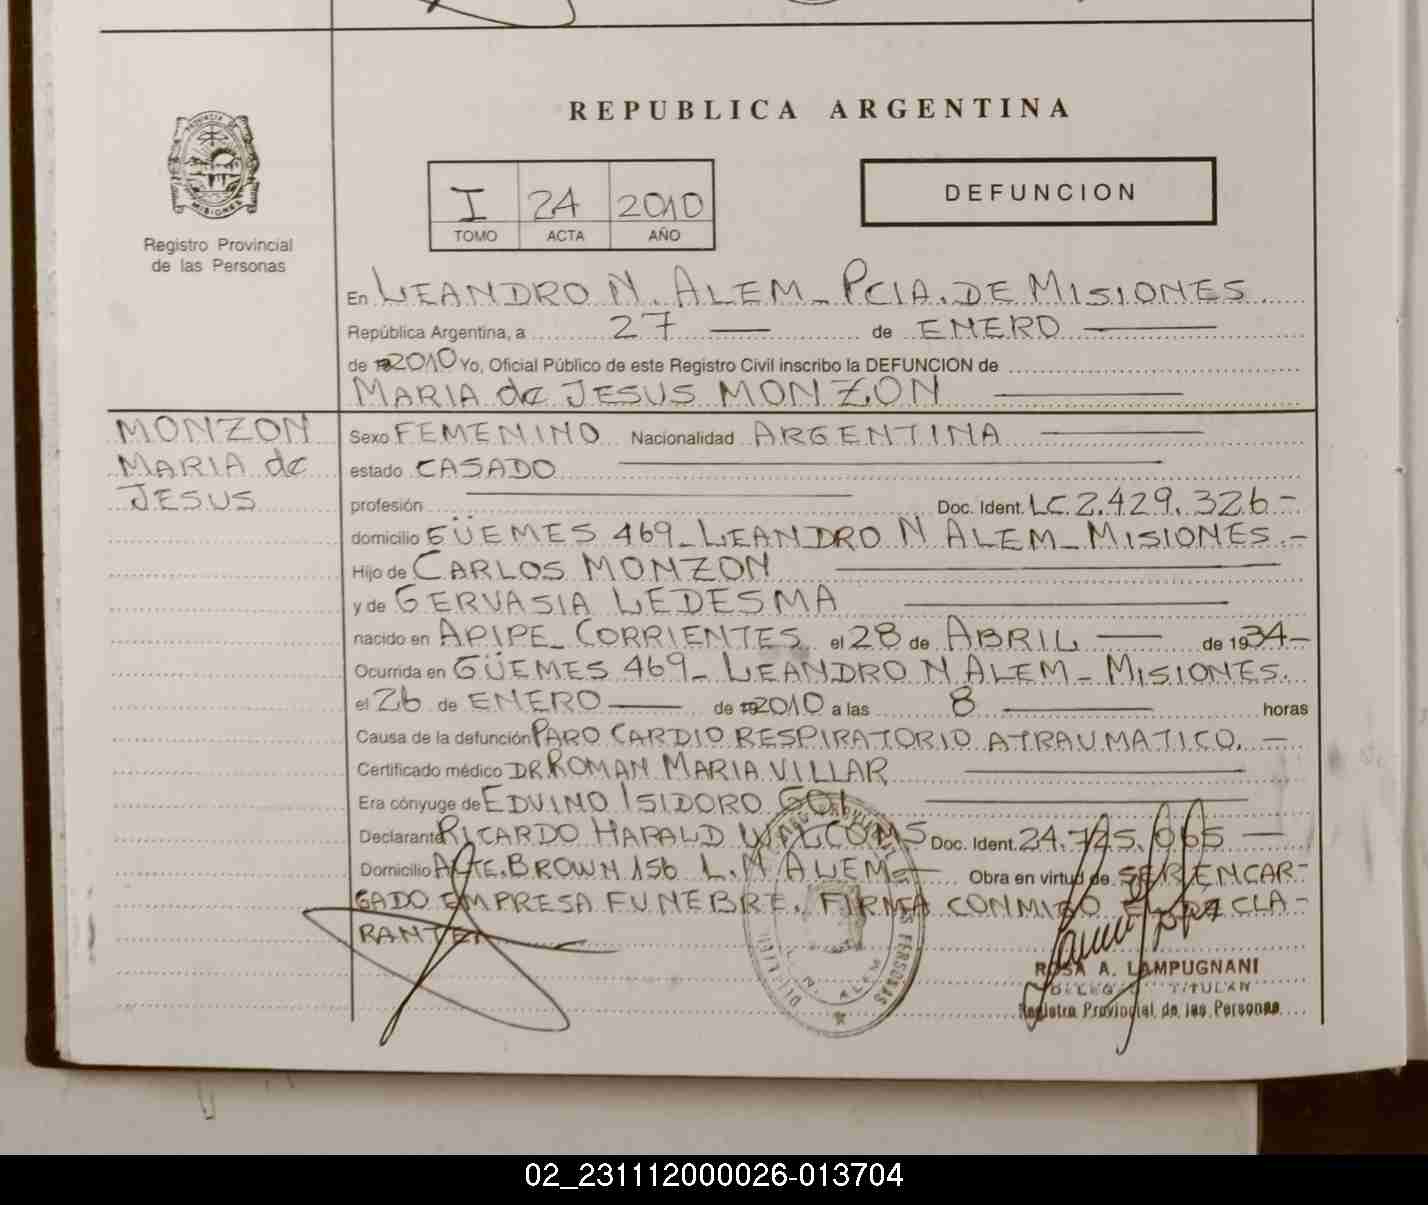 REPUBLICA ARGENTINA
PROVINCIA DE
MISIONES
Registro Provincial
de las Personas
I 24 2010
TOMO ACTA AÑO
DEFUNCION
En LEANDRO N. ALEM - PCIA. DE MISIONES
República Argentina, a 27 de ENERO
de 2010 Yo, Oficial Público de este Registro Civil inscribo la DEFUNCION de
MARIA de JESUS MONZON
MONZON
MARIA de
JESUS
Sexo FEMENINO Nacionalidad ARGENTINA
estado CASADO
profesión Doc. Ident. LC.2.429.326-
domicilio GÜEMES 469 - LEANDRO N ALEM - MISIONES.-
Hijo de CARLOS MONZON
y de GERVASIA LEDESMA
nacido en APIPE - CORRIENTES el 28 de ABRIL de 1934-
Ocurrida en GÜEMES 469 - LEANDRO N ALEM - MISIONES.
el 26 de ENERO de 2010 a las 8 horas
Causa de la defunción PARO CARDIO RESPIRATORIO ATRAUMATICO.-
Certificado médico DR ROMAN MARIA VILLAR
Era cónyuge de EDVINO ISIDORO
Declarante RICARDO HARALD Doc. Ident. 24.725.065
Domicilio ALTE. BROWN 156 L. N ALEM Obra en virtud de SER ENCAR-
GADO EMPRESA FUNEBRE. FIRMA CONMIGO EL DECLA-
RANTE
L. N. ALEM
ROSA A. LAMPUGNANI
TITULAR
Registro Provincial de las Personas
02_231112000026-013704